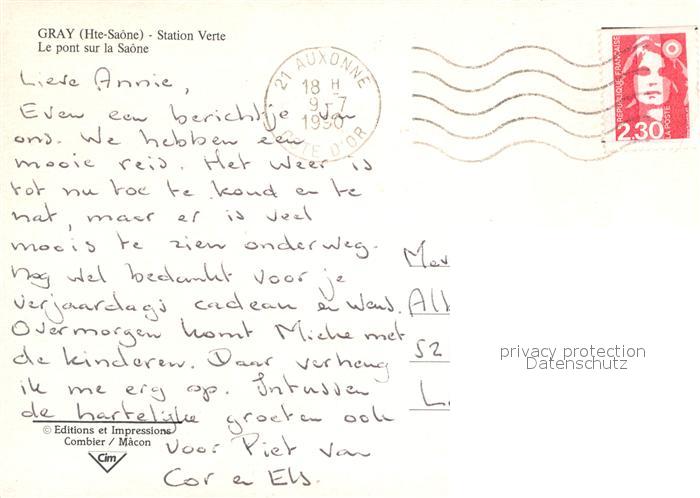 GRAY (Hte-Saône) - Station Verte
Le pont sur la Saône
Lieve Annie,
Even een berichtje van
ons. We hebben een
mooie reis. Het weer is
tot nu toe te koud en te
nat, maar er is veel
moois te zien onderweg.
Nog wel bedankt voor je
verjaardags cadeau en wens.
Overmorgen komt Mieke met
de kinderen. Daar verheug
ik me erg op. Intussen
de hartelijke groeten ook
voor Piet van
Cor en Els.
© Editions et Impressions
Combier / Mâcon
Cim
21 AUXONNE
18 H
9-7
1990
COTE D'OR
REPUBLIQUE FRANÇAISE
LA POSTE
2,30
Mev
52
privacy protection
Datenschutz